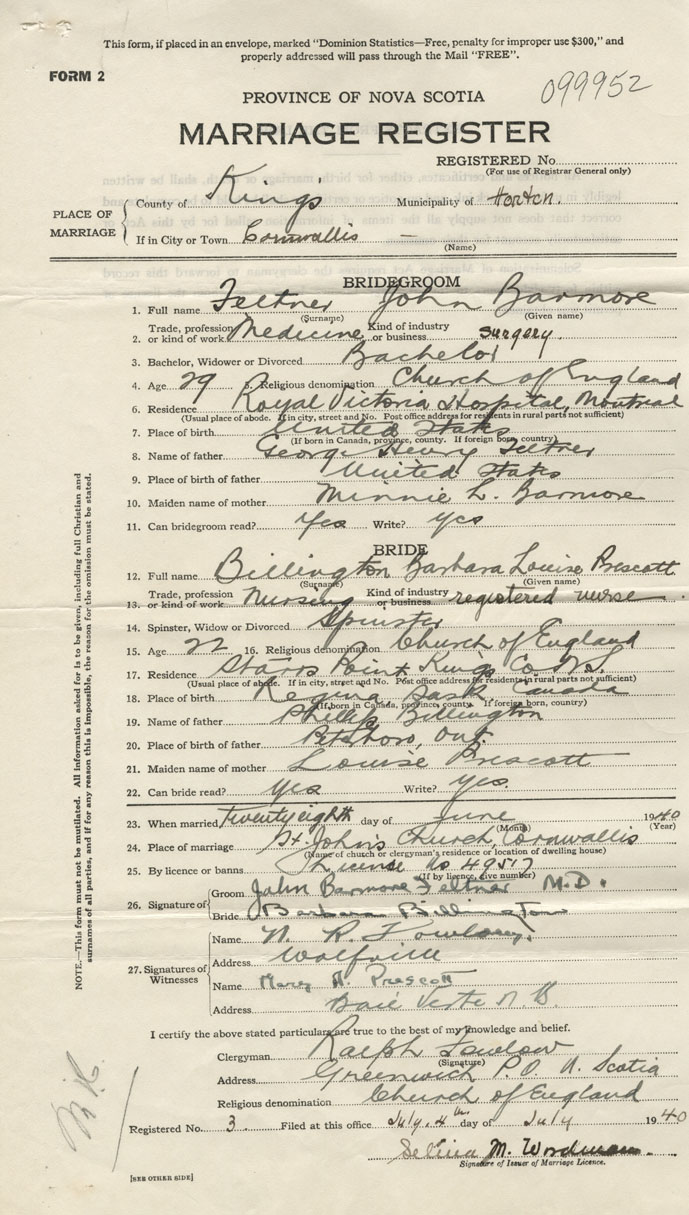 This form, if placed in an envelope, marked "Dominion Statistics—Free, penalty for improper use $300," and
properly addressed will pass through the Mail "FREE".
FORM 2
099952
PROVINCE OF NOVA SCOTIA
MARRIAGE REGISTER
REGISTERED No.
(For use of Registrar General only)
PLACE OF MARRIAGE
County of King's Municipality of Horton.
If in City or Town Cornwallis —
(Name)
BRIDEGROOM
1. Full name Feltner John Barmore
(Surname) (Given name)
2. Trade, profession or kind of work Medicine Kind of industry or business surgery.
3. Bachelor, Widower or Divorced Bachelor
4. Age 29 5. Religious denomination Church of England
6. Residence Royal Victoria Hospital, Montreal
(Usual place of abode. If in city, street and No. Post office address for residents in rural parts not sufficient)
7. Place of birth United States
(If born in Canada, province, county. If foreign born, country)
8. Name of father George Henry Feltner
9. Place of birth of father United States
10. Maiden name of mother Minnie L. Barmore
11. Can bridegroom read? Yes Write? yes
BRIDE
12. Full name Billington Barbara Louise Prescott
(Surname) (Given name)
13. Trade, profession or kind of work Nursing Kind of industry or business registered nurse.
14. Spinster, Widow or Divorced Spinster
15. Age 22 16. Religious denomination Church of England
17. Residence Starrs Point Kings Co. N.S.
(Usual place of abode. If in city, street and No. Post office address for residents in rural parts not sufficient)
18. Place of birth Regina Sask Canada
(If born in Canada, province, county. If foreign born, country)
19. Name of father Phillip Billington
20. Place of birth of father Peterboro, Ont.
21. Maiden name of mother Louise Prescott
22. Can bride read? Yes Write? yes.
23. When married twenty eighth day of June 1940
(Month) (Year)
24. Place of marriage St. John's Church, Cornwallis
(Name of church or clergyman's residence or location of dwelling house)
25. By licence or banns License
(If by licence, give number)
26. Signature of
Groom John Barmore Feltner M.D.
Bride Barbara Billington
27. Signatures of Witnesses
Name N. R.
Address Wolfville
Name Mary A. Prescott
Address Baie Verte N.B.
I certify the above stated particulars are true to the best of my knowledge and belief.
Clergyman Ralph Fowlow
(Signature)
Address Greenwich P.O. N. Scotia
Religious denomination Church of England
Registered No. 3. Filed at this office July. 4th day of July 1940
Selina M. Wordman.
Signature of Issuer of Marriage Licence.
[SEE OTHER SIDE]
NOTE.—This form must not be mutilated. All information asked for is to be given, including full Christian and
surnames of all parties, and if for any reason this is impossible, the reason for the omission must be stated.